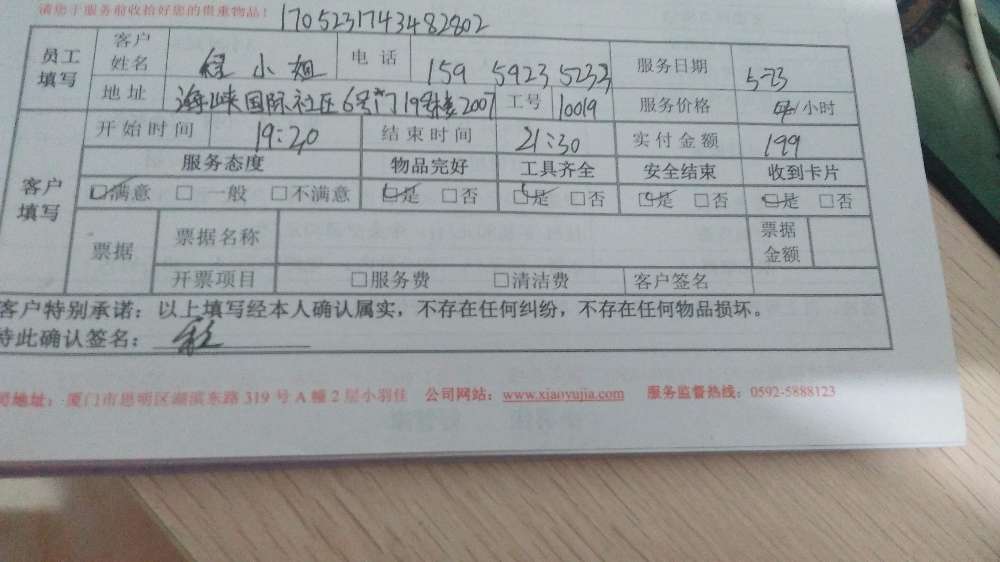 请您于服务前收拾好您的贵重物品！ 1705231743482802
员工填写 客户姓名 程小姐 电话 159 5923 5233 服务日期 5-23
地址 海峡国际社区6号门19号楼2007 工号 10019 服务价格 /小时
开始时间 19:20 结束时间 21:30 实付金额 199
客户填写 服务态度 物品完好 工具齐全 安全结束 收到卡片
☑满意 □一般 □不满意 ☑是 □否 ☑是 □否 ☑是 □否 ☑是 □否
票据 票据名称 票据金额
开票项目 □服务费 □清洁费 客户签名
客户特别承诺：以上填写经本人确认属实，不存在任何纠纷，不存在任何物品损坏。
特此确认签名：
司地址：厦门市思明区湖滨东路319号A幢2层小羽佳 公司网站：www.xiaoyujia.com 服务监督热线：0592-5888123